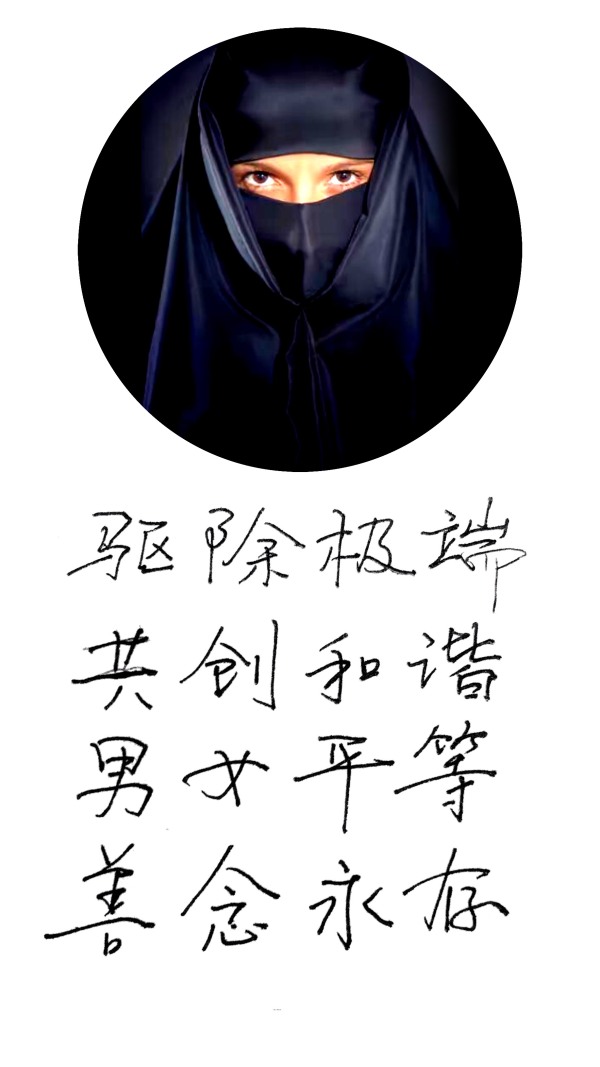 驱除极端
共创和谐
男女平等
善念永存